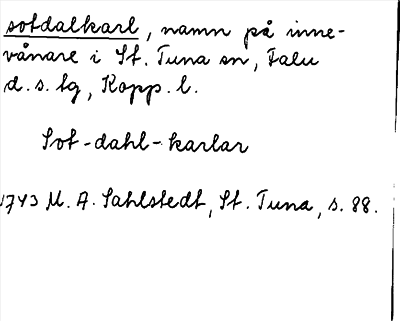 sotdalkarl, namn på inne-
vånare i St. Tuna sn, Falu
d.s. lg, Kopp. l.
Sot-dahl-karlar
1743 M. A. Sahlstedt, St. Tuna, s. 88.